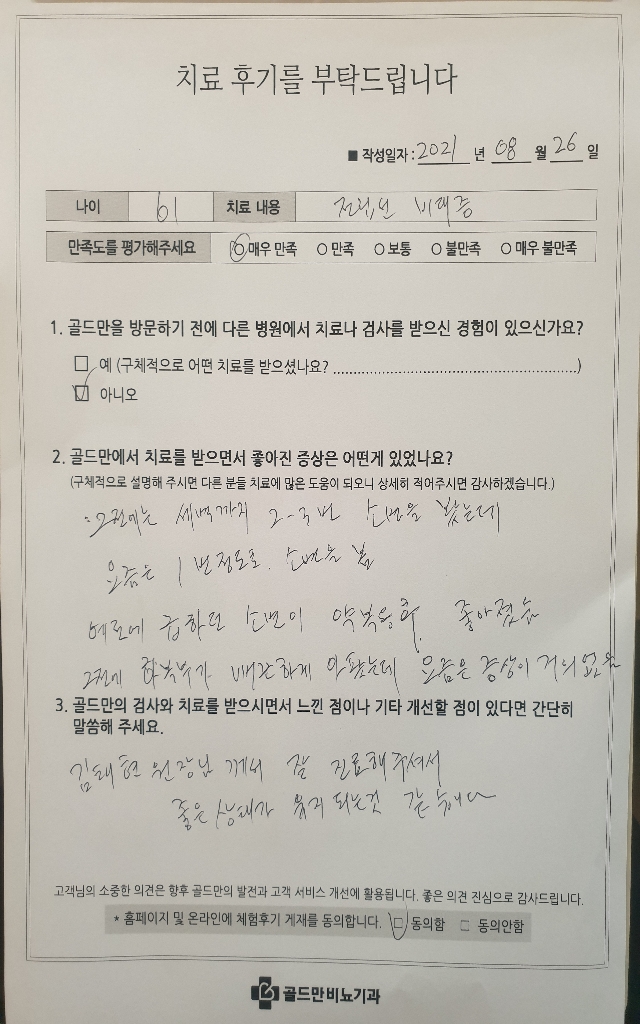 치료 후기를 부탁드립니다
■ 작성일자 : 2021 년 08 월 26 일
나이 61 치료 내용 전립선 비대증
만족도를 평가해주세요 ○ 매우 만족 ○ 만족 ○ 보통 ○ 불만족 ○ 매우 불만족
1. 골드만을 방문하기 전에 다른 병원에서 치료나 검사를 받으신 경험이 있으신가요?
□ 예 (구체적으로 어떤 치료를 받으셨나요? ............................................................)
☑ 아니오
2. 골드만에서 치료를 받으면서 좋아진 증상은 어떤게 있었나요?
(구체적으로 설명해 주시면 다른 분들 치료에 많은 도움이 되오니 상세히 적어주시면 감사하겠습니다.)
: 그전에는 새벽까지 2-3번 소변을 봤는데
요즘은 1번정도로. 소변을 봄
급하던 소변이 약복용후. 좋아졌음
그전에 하복부가 안 요즘은 증상이 거의 없음
3. 골드만의 검사와 치료를 받으시면서 느낀 점이나 기타 개선할 점이 있다면 간단히
말씀해 주세요.
김태현 원장님 께서 잘 진료해주셔서
좋은 상태가 유지 되는것 같습니다
고객님의 소중한 의견은 향후 골드만의 발전과 고객 서비스 개선에 활용됩니다. 좋은 의견 진심으로 감사드립니다.
* 홈페이지 및 온라인에 체험후기 게재를 동의합니다. ☑ 동의함 □ 동의안함
골드만비뇨기과